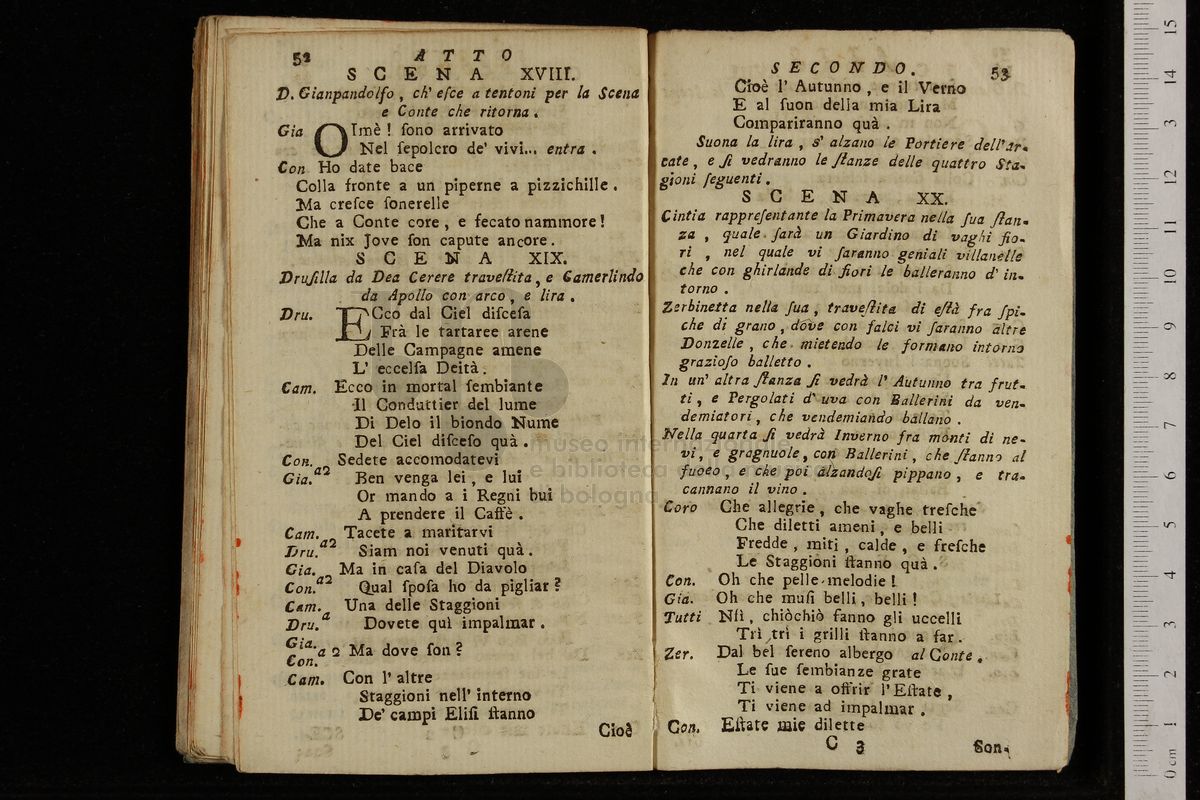 52
ATTO
SCENA XVIII.
D. Gianpandolfo, ch' esce a tentoni per la Scena
e Conte che ritorna.
Gia OImè! sono arrivato
Nel sepolcro de' vivi... entra.
Con Ho date bace
Colla fronte a un piperne a pizzichille.
Ma cresce sonerelle
Che a Conte core, e fecato nammore!
Ma nix Jove son capute ancore.
SCENA XIX.
Drusilla da Dea Cerere travestita, e Camerlindo
da Apollo con arco, e lira.
Dru. ECco dal Ciel discesa
Frà le tartaree arene
Delle Campagne amene
L' eccelsa Deità.
Cam. Ecco in mortal sembiante
Il Conduttier del lume
Di Delo il biondo Nume
Del Ciel disceso quà.
Con. Sedete accomodatevi
Gia. a2 Ben venga lei, e lui
Or mando a i Regni bui
A prendere il Caffè.
Cam. Tacete a maritarvi
Dru. a2 Siam noi venuti quà.
Gia. Ma in casa del Diavolo
Con. a2 Qual sposa ho da pigliar?
Cam. Una delle Staggioni
Dru. a Dovete quì impalmar.
Gia.
Con. a 2 Ma dove son?
Cam. Con l' altre
Staggioni nell' interno
De' campi Elisi stanno
Cioè
SECONDO.
53
Cioè l' Autunno, e il Verno
E al suon della mia Lira
Compariranno quà.
Suona la lira, s' alzano le Portiere dell' ar-
cate, e si vedranno le stanze delle quattro Sta-
gioni seguenti.
SCENA XX.
Cintia rappresentante la Primavera nella sua stan-
za, quale sarà un Giardino di vaghi fio-
ri, nel quale vi saranno geniali villanelle
che con ghirlande di fiori le balleranno d' in-
torno.
Zerbinetta nella sua, travestita di està fra spi-
che di grano, dove con falci vi saranno altre
Donzelle, che mietendo le formano intorno
grazioso balletto.
In un' altra stanza si vedrà l' Autunno tra frut-
ti, e Pergolati d' uva con Ballerini da ven-
demiatori, che vendemiando ballano.
Nella quarta si vedrà Inverno fra monti di ne-
vi, e gragnuole, con Ballerini, che stanno al
fuoco, e che poi alzandosi pippano, e tra-
cannano il vino.
Coro Che allegrie, che vaghe tresche
Che diletti ameni, e belli
Fredde, miti, calde, e fresche
Le Staggioni stanno quà.
Con. Oh che pelle melodie!
Gia. Oh che musi belli, belli!
Tutti Nsì, chiòchiò fanno gli uccelli
Trì trì i grilli stanno a far.
Zer. Dal bel sereno albergo al Conte.
Le sue sembianze grate
Ti viene a offrir l' Estate,
Ti viene ad impalmar.
Con. Estate mie dilette
C 3
Son-
museo internazionale
e biblioteca
bologna
0 cm 1 2 3 4 5 6 7 8 9 10 11 12 3 14 15